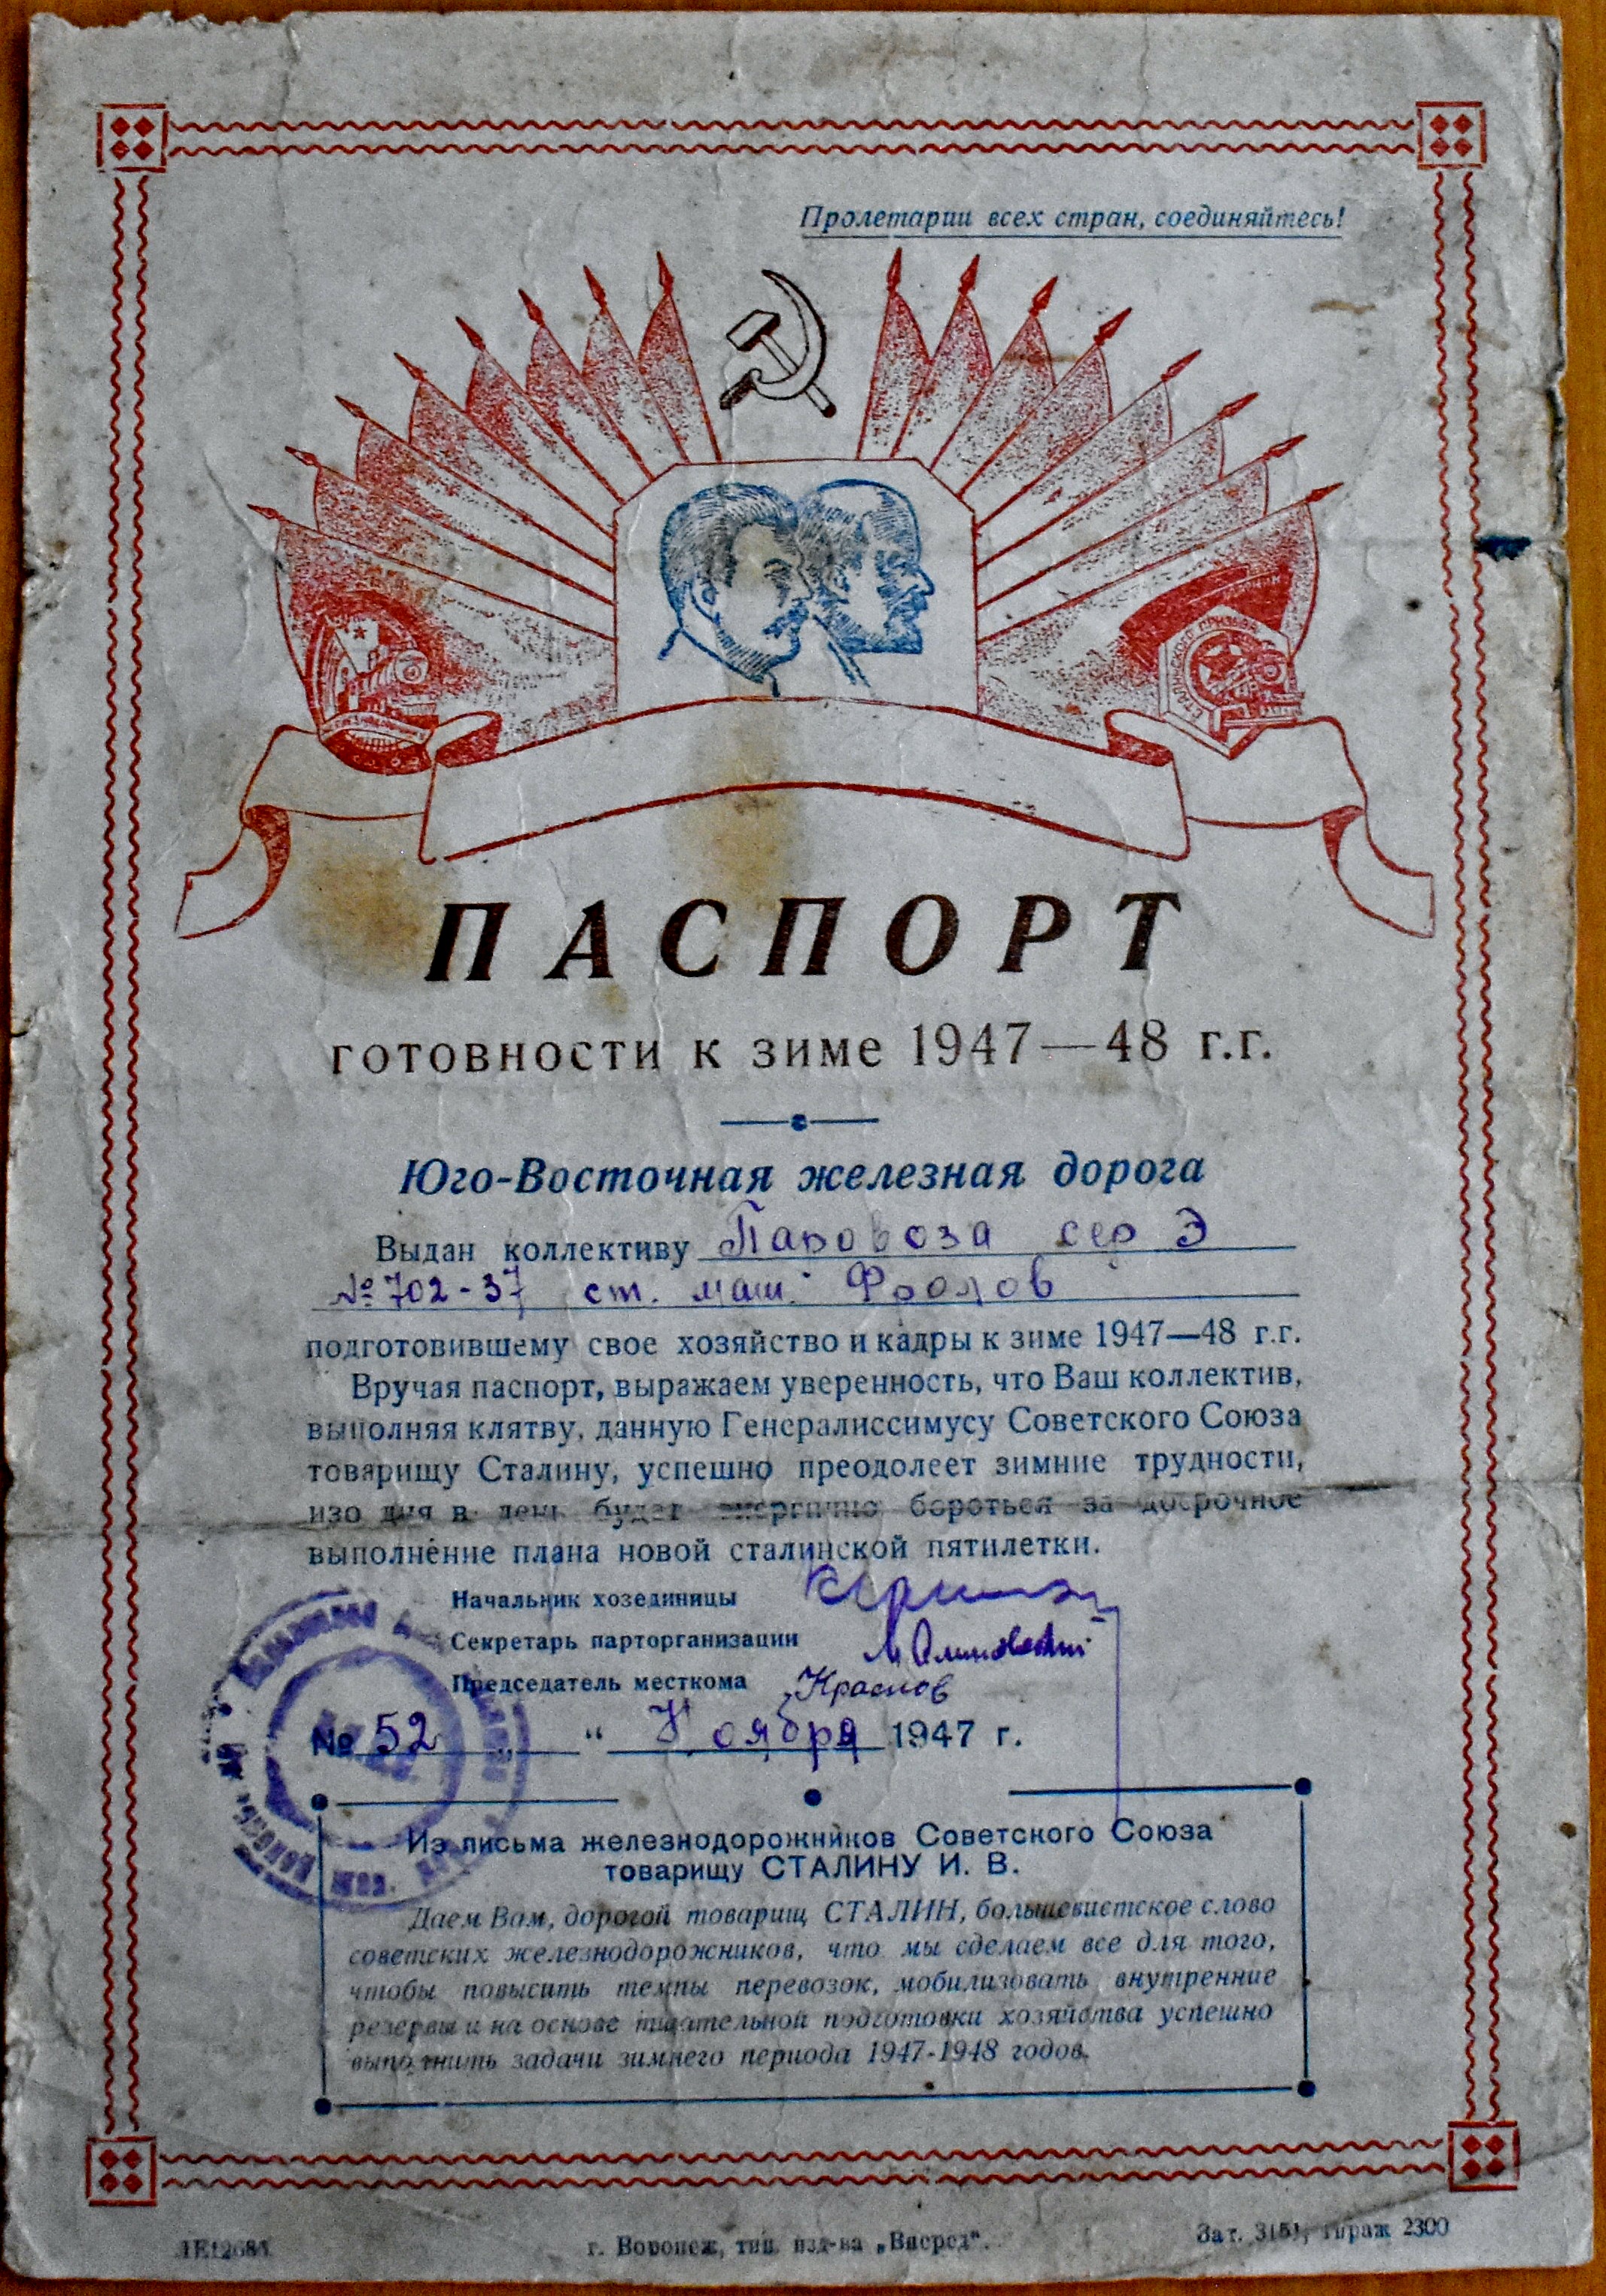 Пролетарии всех стран, соединяйтесь!
СТАЛИНСКОГО ПРИЗЫВА
ПАСПОРТ
готовности к зиме 1947—48 г.г.
Юго-Восточная железная дорога
Выдан коллективу Паровоза сер Э
№ 702-37 ст. маш. Фролов
подготовившему свое хозяйство и кадры к зиме 1947—48 г.г.
Вручая паспорт, выражаем уверенность, что Ваш коллектив,
выполняя клятву, данную Генералиссимусу Советского Союза
товарищу Сталину, успешно преодолеет зимние трудности,
изо дня в день будет энергично бороться за досрочное
выполнение плана новой сталинской пятилетки.
Начальник хозединицы
Секретарь парторганизации
Председатель месткома Краснов
№ 52 „ “ Ноября 1947 г.
Из письма железнодорожников Советского Союза
товарищу СТАЛИНУ И. В.
Даем Вам, дорогой товарищ СТАЛИН, большевистское слово
советских железнодорожников, что мы сделаем все для того,
чтобы повысить темпы перевозок, мобилизовать внутренние
резервы и на основе тщательной подготовки хозяйства успешно
выполнить задачи зимнего периода 1947-1948 годов.
г. Воронеж, тип. изд-ва „Вперед“. тираж 2300